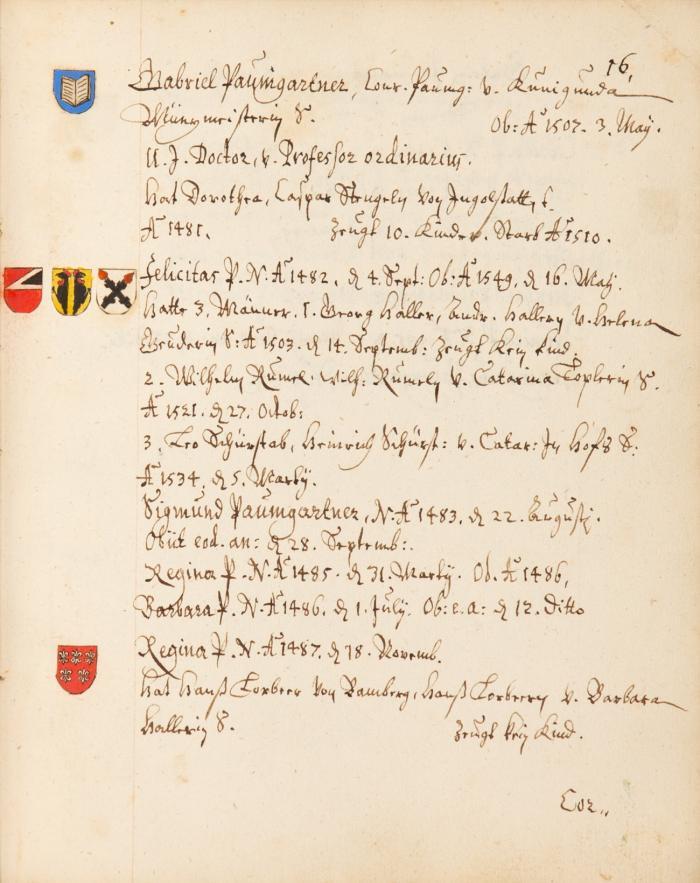 16.
Gabriel Paumgartner, Conr. Paumg: v. Kunigunda
Münzmeisterin S. Ob: Aͦ 1507. 3. May.
U. J. Doctor, v. Professor ordinarius.
hat Dorothea, Caspar Stengeln von Ingolstatt,
Aͦ 1481. Zeugt 10. Kinder. Starb Aͦ 1510.
Felicitas P. N. Aͦ 1482. d 4. Sept: Ob: Aͦ 1549. d 16. May.
Hatte 3. Männer. 1. Georg Haller, Andr. Hallern v. Helena
Geuderin S: Aͦ 1503. d 14. Septemb: Zeugt kein Kind.
2. Wilhelm Rumel. Wilh: Rumeln v. Catarina Toplerin S.
Aͦ 1521. d 27. Octob:
3. Leo Schürstab, Heinrich Schürst: v. Catar: Im Hofs S:
Aͦ 1534. d 5. Martÿ.
Sigmund Paumgartner, N. Aͦ 1483. d 22. Augustj.
Obiit eod. an: d 28. Septemb:.
Regina P. N. Aͦ 1485. d 31. Martÿ. Ob. Aͦ 1486.
Barbara P. N. Aͦ 1486. d 1. July. Ob: e. a: d 12. ditto
Regina P. N. Aͦ 1487. d 18. Novemb.
hat Hanß Lorbeer von Bamberg, Hanß Lorbeern v. Barbara
Hallerin S. Zeugt kein Kind.